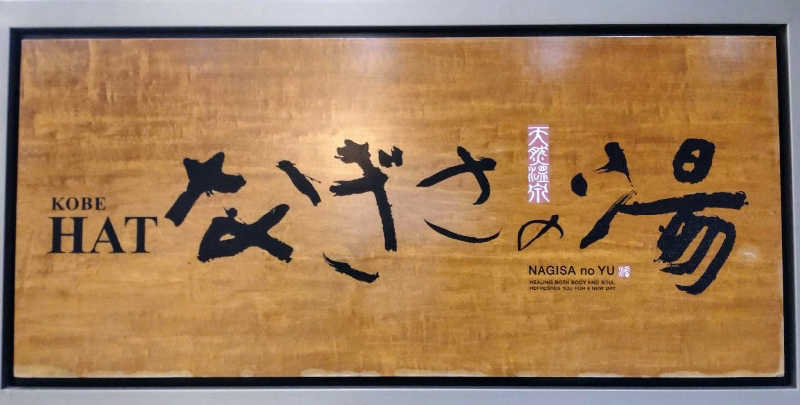 KOBE
HAT
なぎさの湯
天然温泉
NAGISA no YU
HEALING BOTH BODY AND SOUL,
REFRESHES YOU FOR A NEW DAY